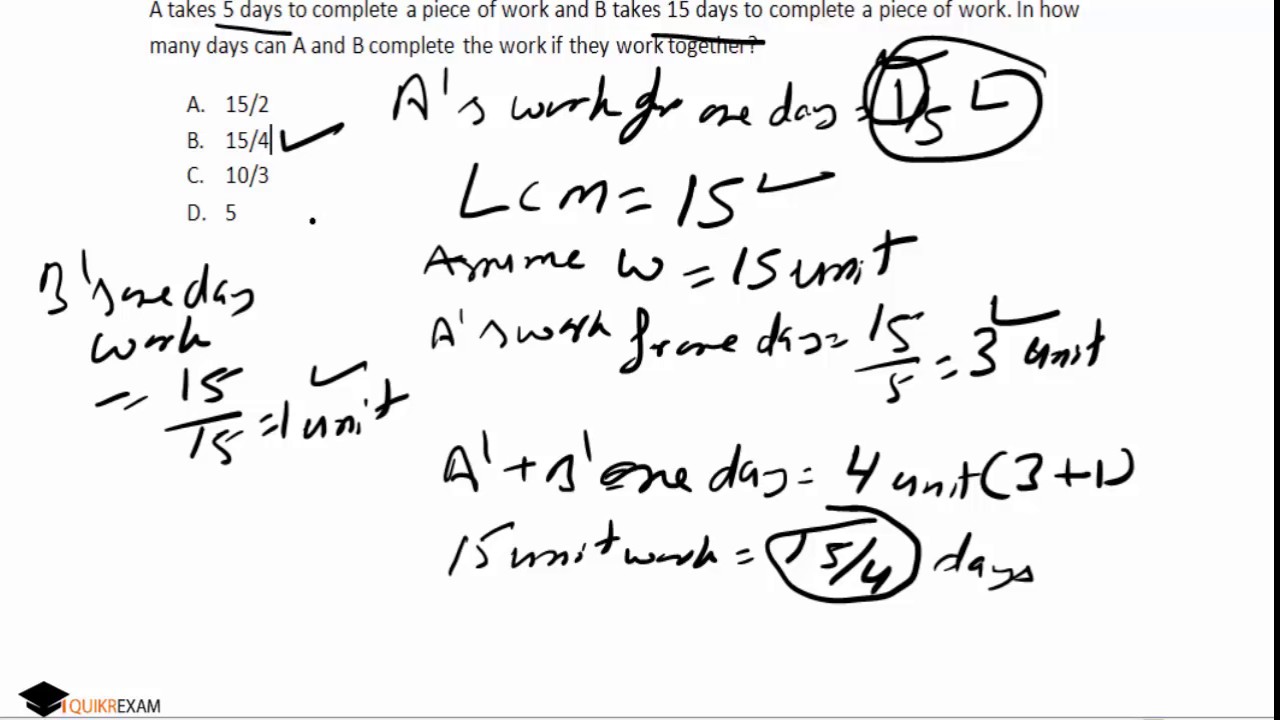 A takes 5 days to complete a piece of work and B takes 15 days to complete a piece of work. In how
many days can A and B complete the work if they work together?
A. 15/2
B. 15/4
C. 10/3
D. 5
A's work for one day = 1/5
LCM = 15
Assume W = 15 unit
A's work for one day = 15/5 = 3 unit
B's one day
work
= 15/15 = 1 unit
A' + B' one day = 4 unit (3+1)
15 unit work = 15/4 days
QUIKREXAM